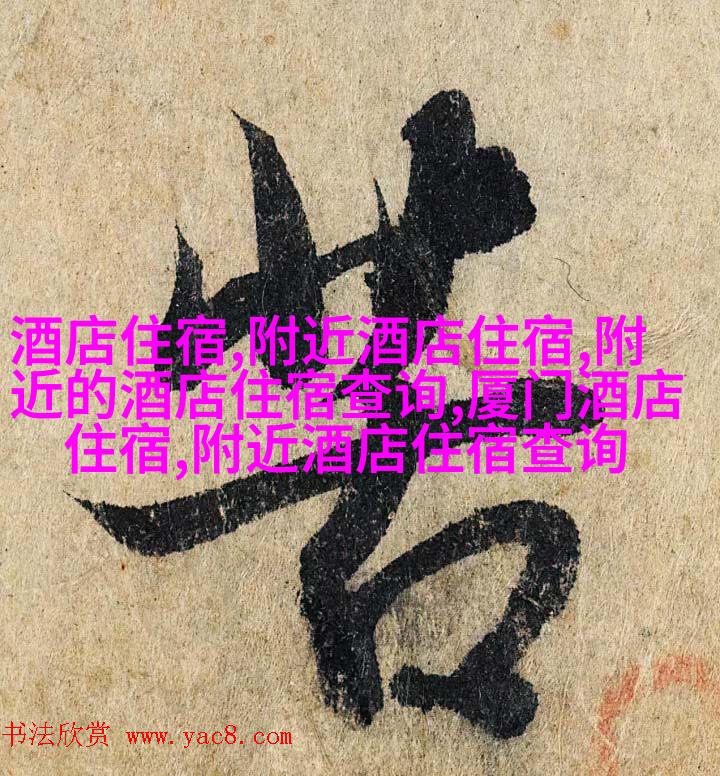 酒店住宿,附近酒店住宿,附
近的酒店住宿查询,厦门酒店
住宿,附近酒店住宿查询
书法欣赏 www.yac8.com